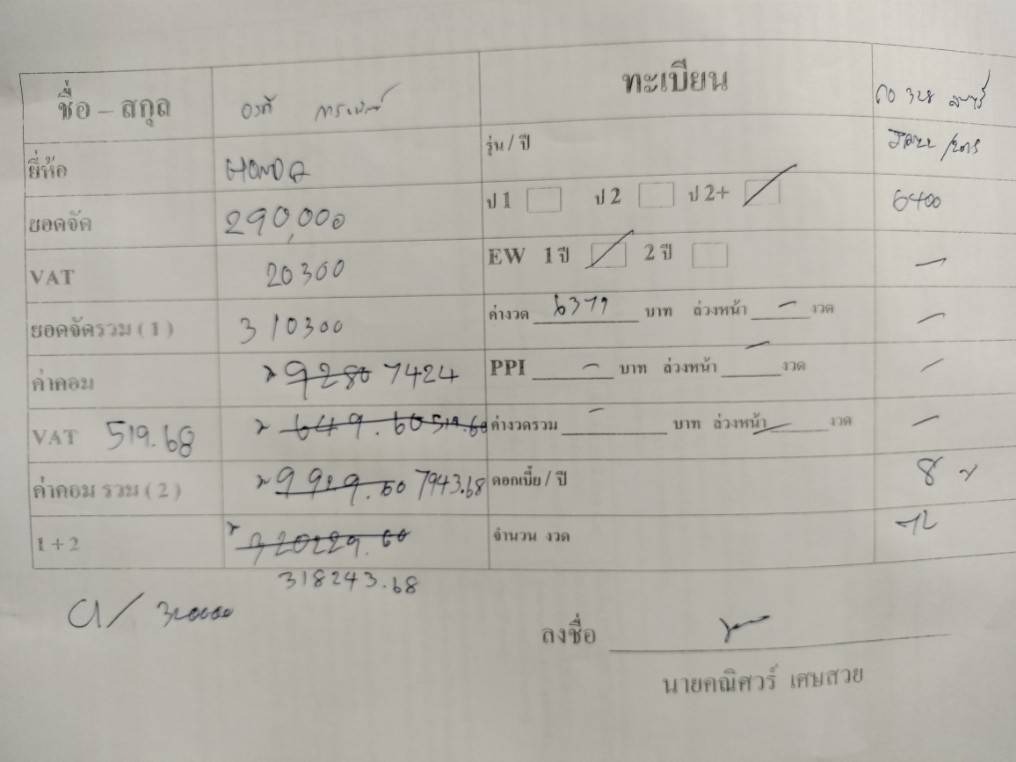 ชื่อ – สกุล ทะเบียน
ยี่ห้อ HONDA รุ่น / ปี JAZZ / 2015
ยอดจัด 290,000 ป 1 ป 2 ป 2+ 6400
VAT 20300 EW 1 ปี 2 ปี –
ยอดจัดรวม ( 1 ) 310300 ค่างวด 6379 บาท ล่วงหน้า – งวด –
ค่าคอม 9280 7424 PPI – บาท ล่วงหน้า – งวด –
VAT 519.68 649.60 519.68 ค่างวดรวม – บาท ล่วงหน้า – งวด –
ค่าคอม รวม ( 2 ) 9929.60 7943.68 ดอกเบี้ย / ปี 8
1 + 2 320229.60 จำนวน งวด 72
318243.68
ลงชื่อ
นายคณิศวร์ เศษสวย